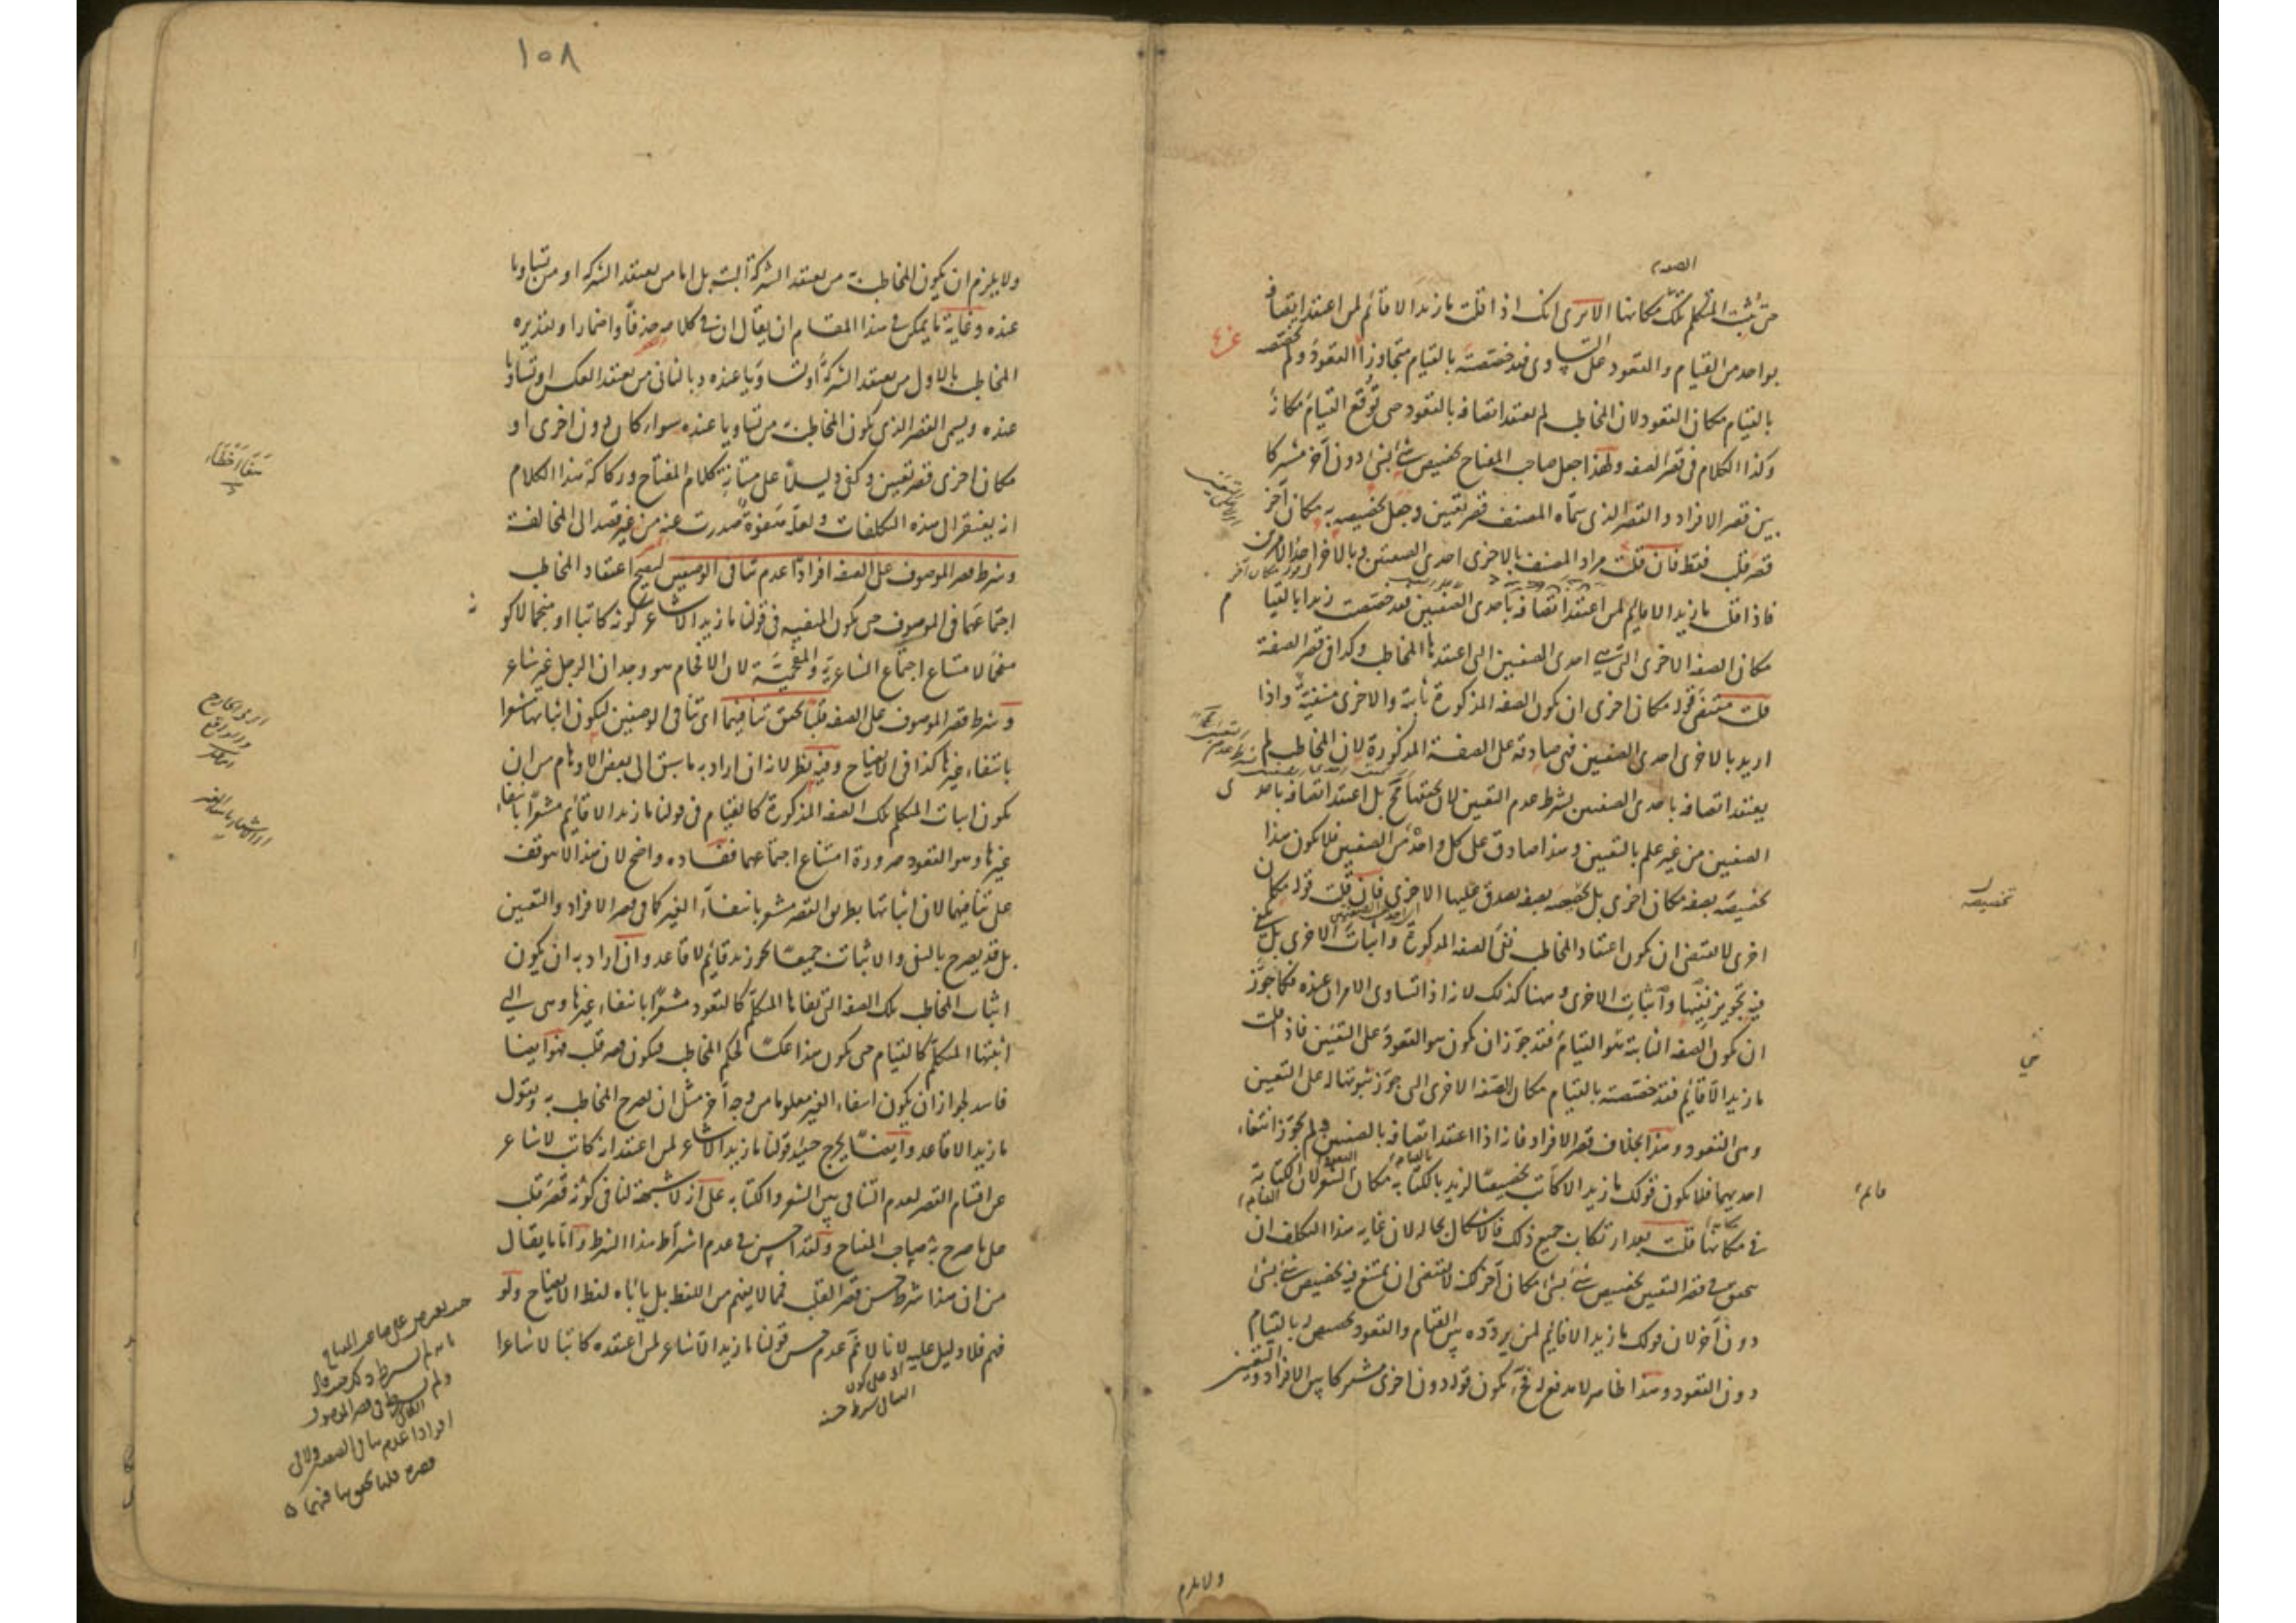 حتى يثبت المتكلم تلك مكانها الا ترى انك اذا قلت ما زيد الا قائم لمن اعتقد اتصافه
بواحد من القيام والقعود على التساوى فقد خصصته بالقيام متجاوزا القعود ولم تخصصه
بالقيام مكان القعود لان المخاطب لم يعتقد اتصافه بالقعود حتى توقع القيام مكانه
وكذا الكلام فى قصر الصفة ولهذا جعل صاحب المفتاح تخصيص شئ بشئ دون آخر مشتركا
بين قصر الافراد والقصر الذى سماه المصنف قصر تعيين وجعل تخصيصه به مكان آخر
قصر قلب فقط فان قلت مراد المصنف بالاخرى احدى الصفتين وبالآخر احد الامرين
فاذا قلت ما زيد الا قائم لمن اعتقد اتصافه باحدى الصفتين فقد خصصت زيدا بالقيام
مكان الصفة الاخرى التى هى احدى الصفتين التى اعتقدها المخاطب وكذا فى قصر الصفة
قلت مقتضى قوله مكان اخرى ان تكون الصفة المذكورة ثابتة والاخرى منفية واذا
اريد بالاخرى احدى الصفتين فهى صادقة على الصفة المذكورة لان المخاطب لم
يعتقد اتصافه باحدى الصفتين بشرط عدم التعيين بل اعتقد اتصافه باحدى
الصفتين من غير علم بالتعيين وهذا صادق على كل واحد من الصفتين فلا يكون هذا
تخصيصه بصفة مكان اخرى بل تخصيصه بصفة يصدق عليها الاخرى فان قلت قوله مكان
اخرى لا يقتضى ان يكون اعتقاد المخاطب نفى الصفة المذكورة واثبات الاخرى بل يكفى
فيه تجويز نفيها واثبات الاخرى وهنا كذلك لانه اذا تساوى الامران عنده فكما جوز
ان تكون الصفة الثابتة هو القيام فقد جوز ان تكون هو القعود على التعيين فاذا قلت
ما زيد الا قائم فقد خصصته بالقيام مكان الصفة الاخرى التى جوز ثبوتها له على التعيين
وهى القعود وهذا بخلاف قصر الافراد فانه اذا اعتقد اتصافه بالصفتين فلم يجوز انتفاء
احديهما فلا يكون قولك ما زيد الا كاتب تخصيصا لزيد بالكتابة مكان الشعر لان الكتابة
فى مكانها قلت بعد ارتكاب جميع ذلك فالاشكال بحاله لان غاية هذا التكلف ان
يتحقق فى قصر التعيين تخصيص شئ بشئ مكان آخر لكنه لا يقتضى ان يمتنع فيه تخصيص شئ بشئ
دون آخر لان قولك ما زيد الا قائم لمن يردده بين القيام والقعود تخصيص له بالقيام
دون القعود وهذا ظاهر لا مدفع له فح يكون قوله دون اخرى مشتركا بين الافراد والتعيين
ولا يلزم
١٥٨
ولا يلزم ان يكون المخاطب به من يعتقد الشركة البتة بل اما من يعتقد الشركة او من تساويا
عنده وغاية ما يمكن فى هذا المقام ان يقال ان فى كلامه حذفا واضمارا وتقديره
المخاطب بالاول من يعتقد الشركة او تساويا عنده وبالثانى من يعتقد العكس او تساويا
عنده ويسمى القصر الذى يكون المخاطب به من تساويا عنده سواء كان دون اخرى او
مكان اخرى قصر تعيين وكفى دليلا على متانة كلام المفتاح وركاكة هذا الكلام
انه يفتقر الى هذه التكلفات ولعله هفوة صدرت عنه من غير قصد الى المخالفة
وشرط قصر الموصوف على الصفة افرادا عدم تنافى الوصفين ليصح اعتقاد المخاطب
اجتماعهما فى الموصوف حتى تكون المنفية فى قولنا ما زيد الا شاعر كونه كاتبا او منجما لا كونه
مفحما لامتناع اجتماع الشاعرية والمفحمية لان الافحام هو وجدان الرجل غير شاعر
وشرط قصر الموصوف على الصفة قلبا تحقق تنافيهما اى تنافى الوصفين ليكون اثباتها مشعرا
بانتفاء غيرها كذا فى الايضاح وفيه نظر لانه ان اراد به ما سبق الى بعض الاوهام من ان
يكون اثبات المتكلم تلك الصفة المذكورة كالقيام فى قولنا ما زيد الا قائم مشعرا بانتفاء
غيرها وهو القعود ضرورة امتناع اجتماعهما ففساده واضح لان هذا لا يتوقف
على تنافيهما لان اثباتها بطريق القصر مشعر بانتفاء الغير كما فى قصر الافراد والتعيين
بل قد يصرح بالنفى والاثبات جميعا نحو زيد قائم لا قاعد وان اراد به ان يكون
اثبات المخاطب تلك الصفة التى نفاها المتكلم كالقعود مشعرا بانتفاء غيرها وهى التى
اثبتها المتكلم كالقيام حتى يكون هذا عكسا لحكم المخاطب فيكون قصر قلب فهو ايضا
فاسد لجواز ان يكون انتفاء الغير معلوما من وجه آخر مثل ان يصرح المخاطب به ويقول
ما زيد الا قاعد وايضا يخرج حينئذ قولنا ما زيد الا شاعر لمن اعتقد انه كاتب لا شاعر
عن اقسام القصر لعدم التنافى بين الشعر والكتابة على انه لا شبهة لنا فى كونه قصر قلب
على ما صرح به صاحب المفتاح ولقد احسن فى عدم اشتراط هذا الشرط واما ما يقال
من ان هذا شرط حسن قصر القلب فمما لا يفهم من اللفظ بل يأباه لفظ الايضاح ولو
فهم فلا دليل عليه لانا لا نم عدم حسن قولنا ما زيد الا شاعر لمن اعتقده كاتبا لا شاعرا